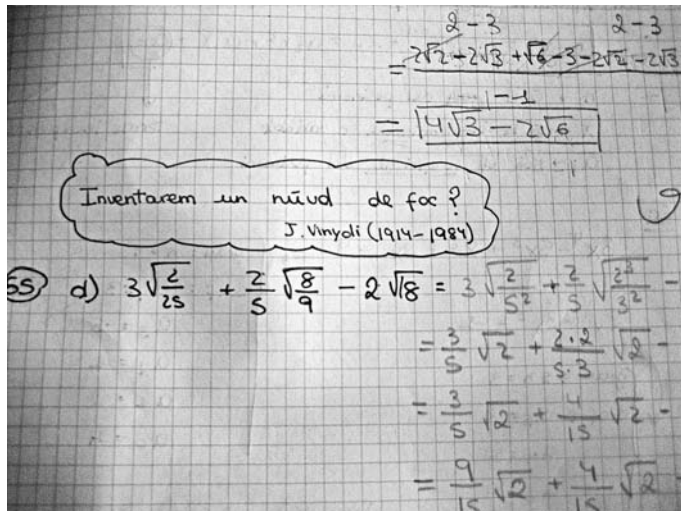 2 - 3 2 - 3
= 2√2 - 2√3 + √6 - 3 - 2√2 - 2√3
-1
= 4√3 - 2√6
Inventarem un núvol de foc?
J. Vinyoli (1914-1984)
55) d) 3√(2/25) + 2/5 √(8/9) - 2√18 = 3√(2/5²) + 2/5 √(2³/3²) -
= 3/5 √2 + 2·2/5·3 √2 -
= 3/5 √2 + 4/15 √2 -
= 9/15 √2 + 4/15 √2